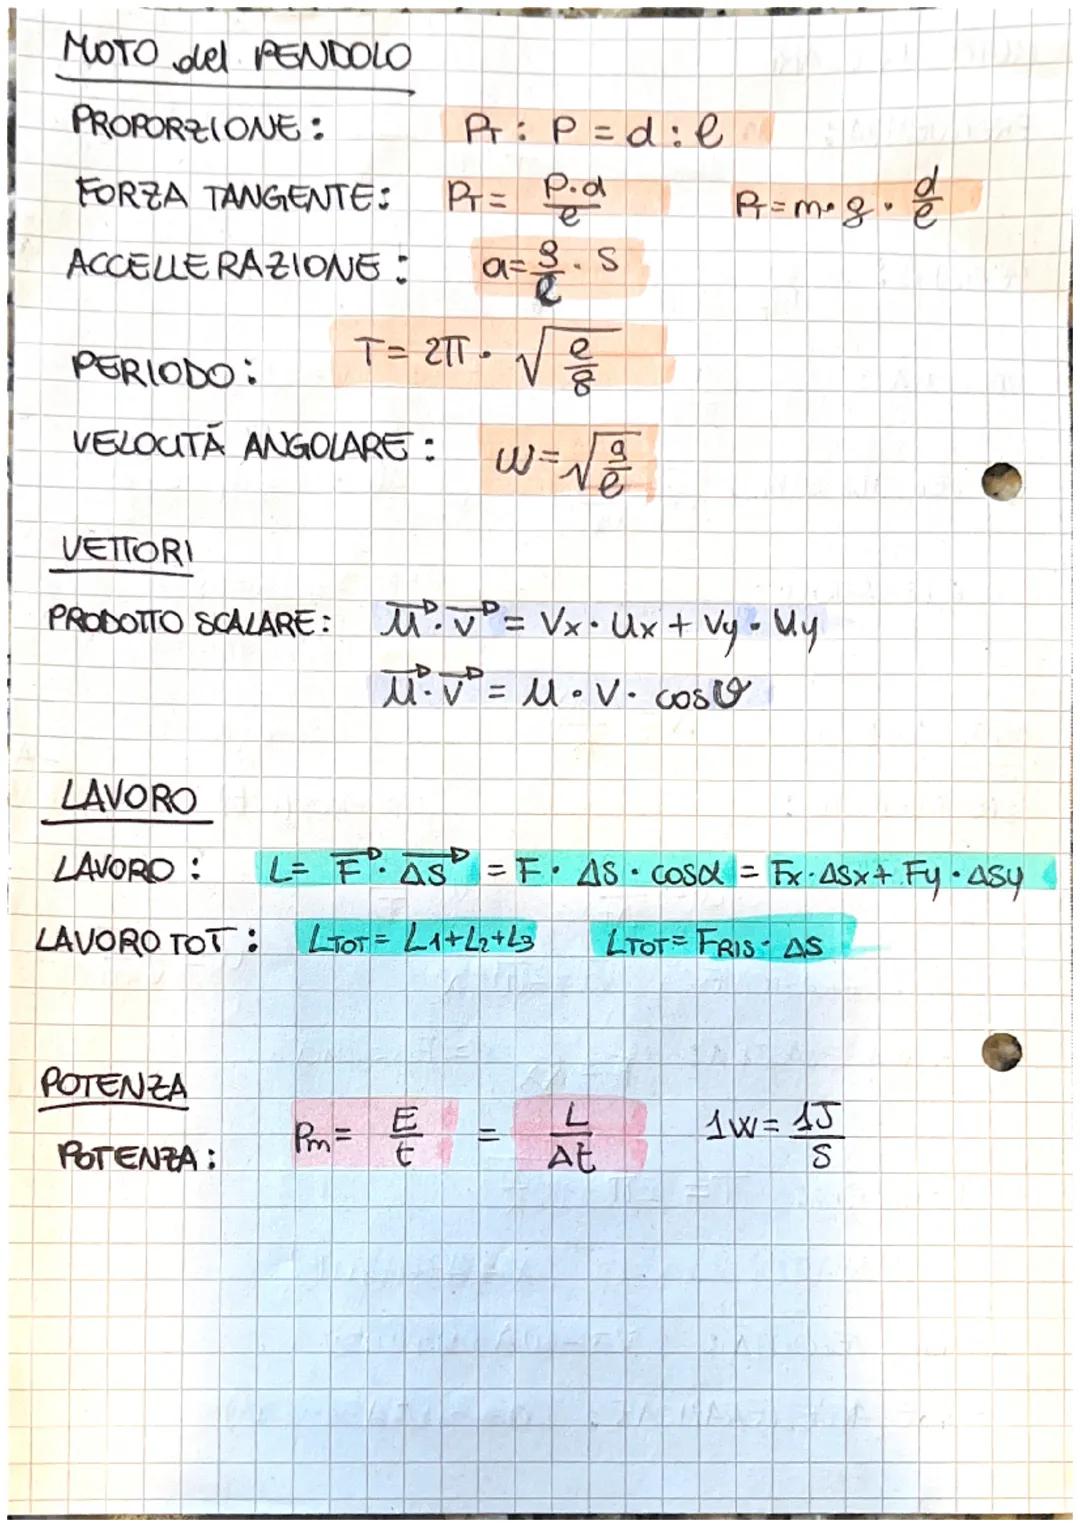 MOTO del PENDOLO
PROPORZIONE: PT : P = d : l
FORZA TANGENTE: PT = P·d/l PT = m·g·d/l
ACCELLERAZIONE: a = g/l · S
PERIODO: T = 2π · √(l/g)
VELOCITÀ ANGOLARE: ω = √(g/l)
VETTORI
PRODOTTO SCALARE: u⃗ · v⃗ = Vx · Ux + Vy · Uy
u⃗ · v⃗ = U · V · cosϑ
LAVORO
LAVORO: L = F⃗ · Δs⃗ = F · ΔS · cosα = Fx · ΔSx + Fy · ΔSy
LAVORO TOT: LTOT = L1+L2+L3 LTOT = FRIS · ΔS
POTENZA
POTENZA: Pm = E/t = L/Δt 1W = 1J/S